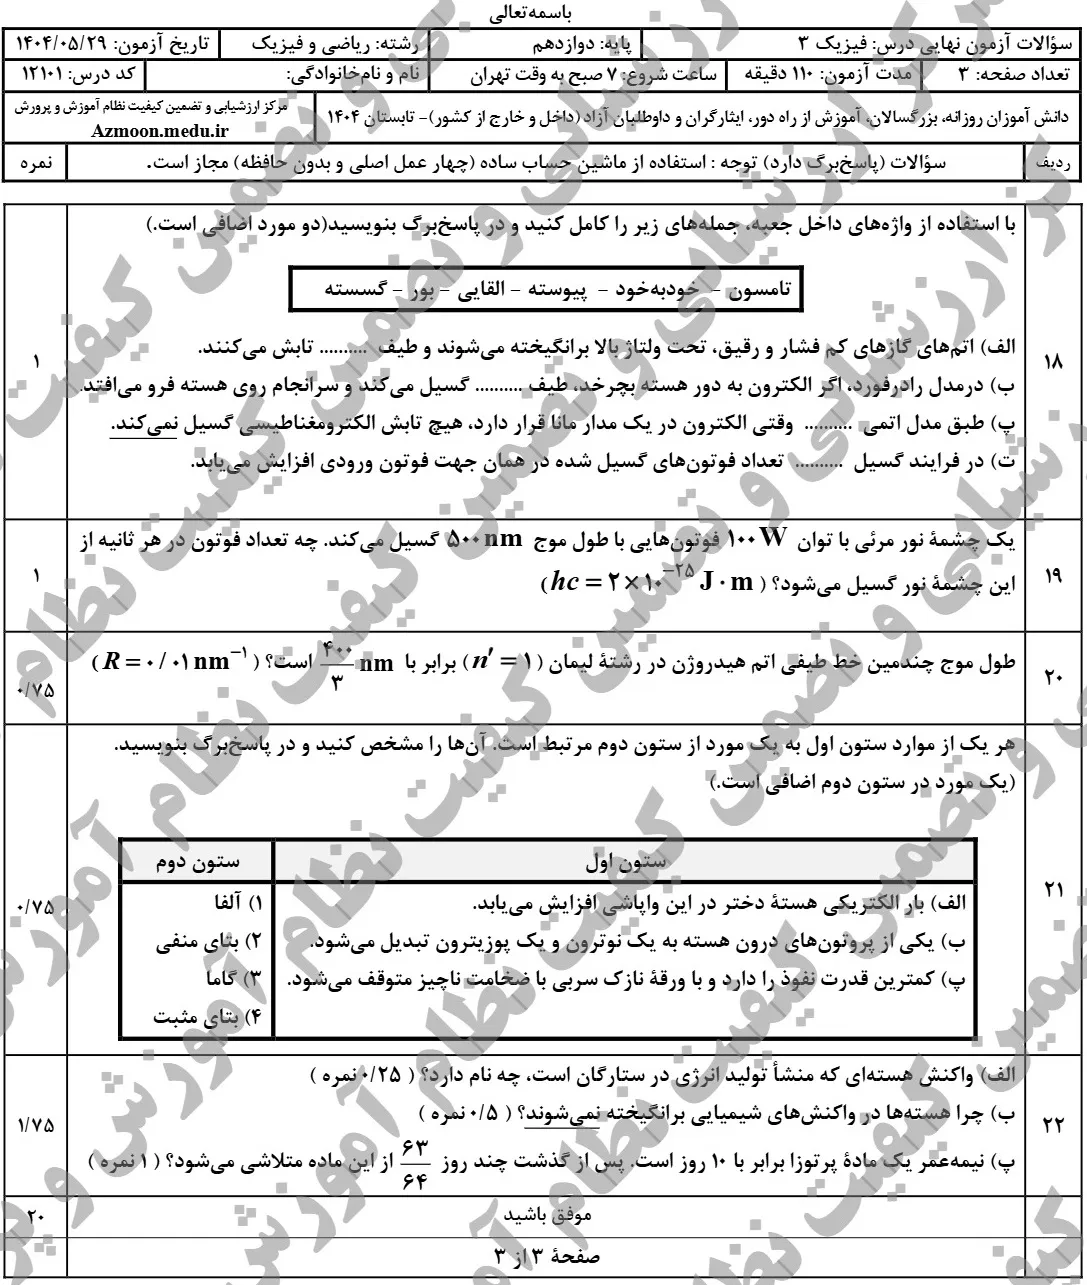 باسمه‌تعالی
سؤالات آزمون نهایی درس: فیزیک ۳ پایه: دوازدهم رشته: ریاضی و فیزیک تاریخ آزمون: ۱۴۰۴/۰۵/۲۹
تعداد صفحه: ۳ مدت آزمون: ۱۱۰ دقیقه ساعت شروع: ۷ صبح به وقت تهران نام و نام‌خانوادگی: کد درس: ۱۲۱۰۱
دانش آموزان روزانه، بزرگسالان، آموزش از راه دور، ایثارگران و داوطلبان آزاد (داخل و خارج از کشور)- تابستان ۱۴۰۴ مرکز ارزشیابی و تضمین کیفیت نظام آموزش و پرورش
Azmoon.medu.ir
ردیف سؤالات (پاسخ‌برگ دارد) توجه : استفاده از ماشین حساب ساده (چهار عمل اصلی و بدون حافظه) مجاز است. نمره
با استفاده از واژه‌های داخل جعبه، جمله‌های زیر را کامل کنید و در پاسخ‌برگ بنویسید(دو مورد اضافی است.)
تامسون - خودبه‌خود - پیوسته - القایی - بور - گسسته
الف) اتم‌های گازهای کم فشار و رقیق، تحت ولتاژ بالا برانگیخته می‌شوند و طیف .......... تابش می‌کنند.
۱۸ ۱
ب) درمدل رادرفورد، اگر الکترون به دور هسته بچرخد، طیف .......... گسیل می‌کند و سرانجام روی هسته فرو می‌افتد.
پ) طبق مدل اتمی .......... وقتی الکترون در یک مدار مانا قرار دارد، هیچ تابش الکترومغناطیسی گسیل نمی‌کند.
ت) در فرایند گسیل .......... تعداد فوتون‌های گسیل شده در همان جهت فوتون ورودی افزایش می‌یابد.
یک چشمهٔ نور مرئی با توان ۱۰۰ W فوتون‌هایی با طول موج ۵۰۰ nm گسیل می‌کند. چه تعداد فوتون در هر ثانیه از
۱۹ ۱
این چشمهٔ نور گسیل می‌شود؟ ( hc = ۲×۱۰⁻²⁵ J·m )
طول موج چندمین خط طیفی اتم هیدروژن در رشتهٔ لیمان ( n′ = ۱ ) برابر با ۴۰۰/۳ nm است؟ ( R = ۰/۰۱ nm⁻¹ )
۲۰ ۰/۷۵
هر یک از موارد ستون اول به یک مورد از ستون دوم مرتبط است. آن‌ها را مشخص کنید و در پاسخ‌برگ بنویسید.
(یک مورد در ستون دوم اضافی است.)
ستون اول ستون دوم
۲۱ ۰/۷۵
الف) بار الکتریکی هستهٔ دختر در این واپاشی افزایش می‌یابد. ۱) آلفا
ب) یکی از پروتون‌های درون هسته به یک نوترون و یک پوزیترون تبدیل می‌شود. ۲) بتای منفی
پ) کمترین قدرت نفوذ را دارد و با ورقهٔ نازک سربی با ضخامت ناچیز متوقف می‌شود. ۳) گاما
۴) بتای مثبت
الف) واکنش هسته‌ای که منشأ تولید انرژی در ستارگان است، چه نام دارد؟ ( ۰/۲۵ نمره )
ب) چرا هسته‌ها در واکنش‌های شیمیایی برانگیخته نمی‌شوند؟ ( ۰/۵ نمره )
۲۲ ۱/۷۵
پ) نیمه‌عمر یک مادهٔ پرتوزا برابر با ۱۰ روز است. پس از گذشت چند روز ۶۳/۶۴ از این ماده متلاشی می‌شود؟ ( ۱ نمره )
موفق باشید ۲۰
صفحهٔ ۳ از ۳
مرکز ارزشیابی و تضمین کیفیت نظام آموزش و پرورش